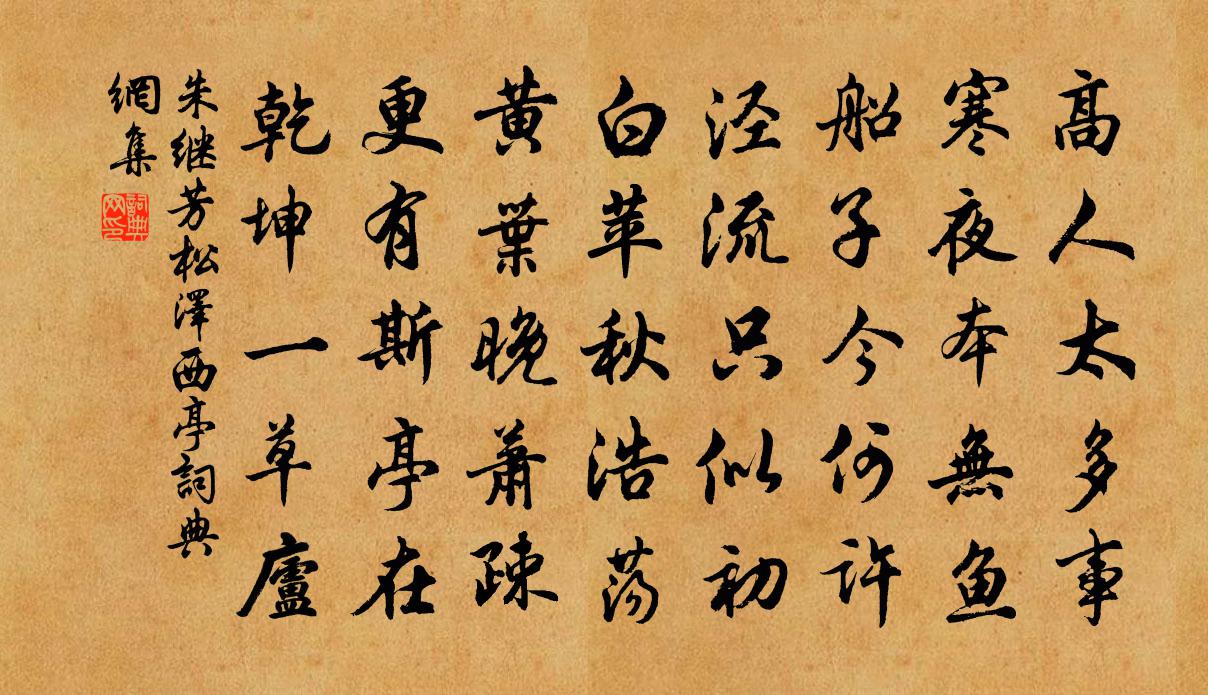 高人太多事
寒夜本無魚
船子今何许
泾流只似初
白苹秋浩荡
黄葉晚萧疎
更有斯亭在
乾坤一草廬
朱继芳松澤西亭詞典
網集
詞典
网印